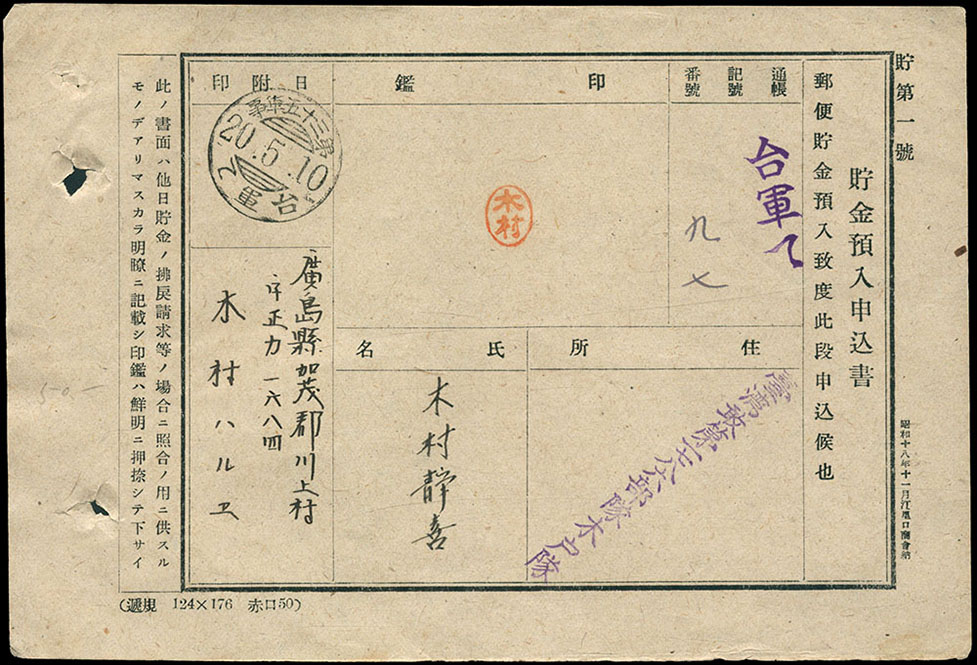 貯第一號
貯金預入申込書
昭和十八年十一月江
郵便貯金預入致度此段申込候也
通帳
記號
番號
台軍
九七
印鑑
木村
住所
部隊木戸隊
氏名
木村靜喜
日附印
20.5.10
台
軍
廣島縣加茂郡川上村
字正力一六八四
木村ハルヱ
此ノ書面ハ他日貯金ノ拂戻請求等ノ場合ニ照合ノ用ニ供スル
モノデアリマスカラ明瞭ニ記載シ印鑑ハ鮮明ニ押捺シテ下サイ
(規遞 124×176 赤口50)